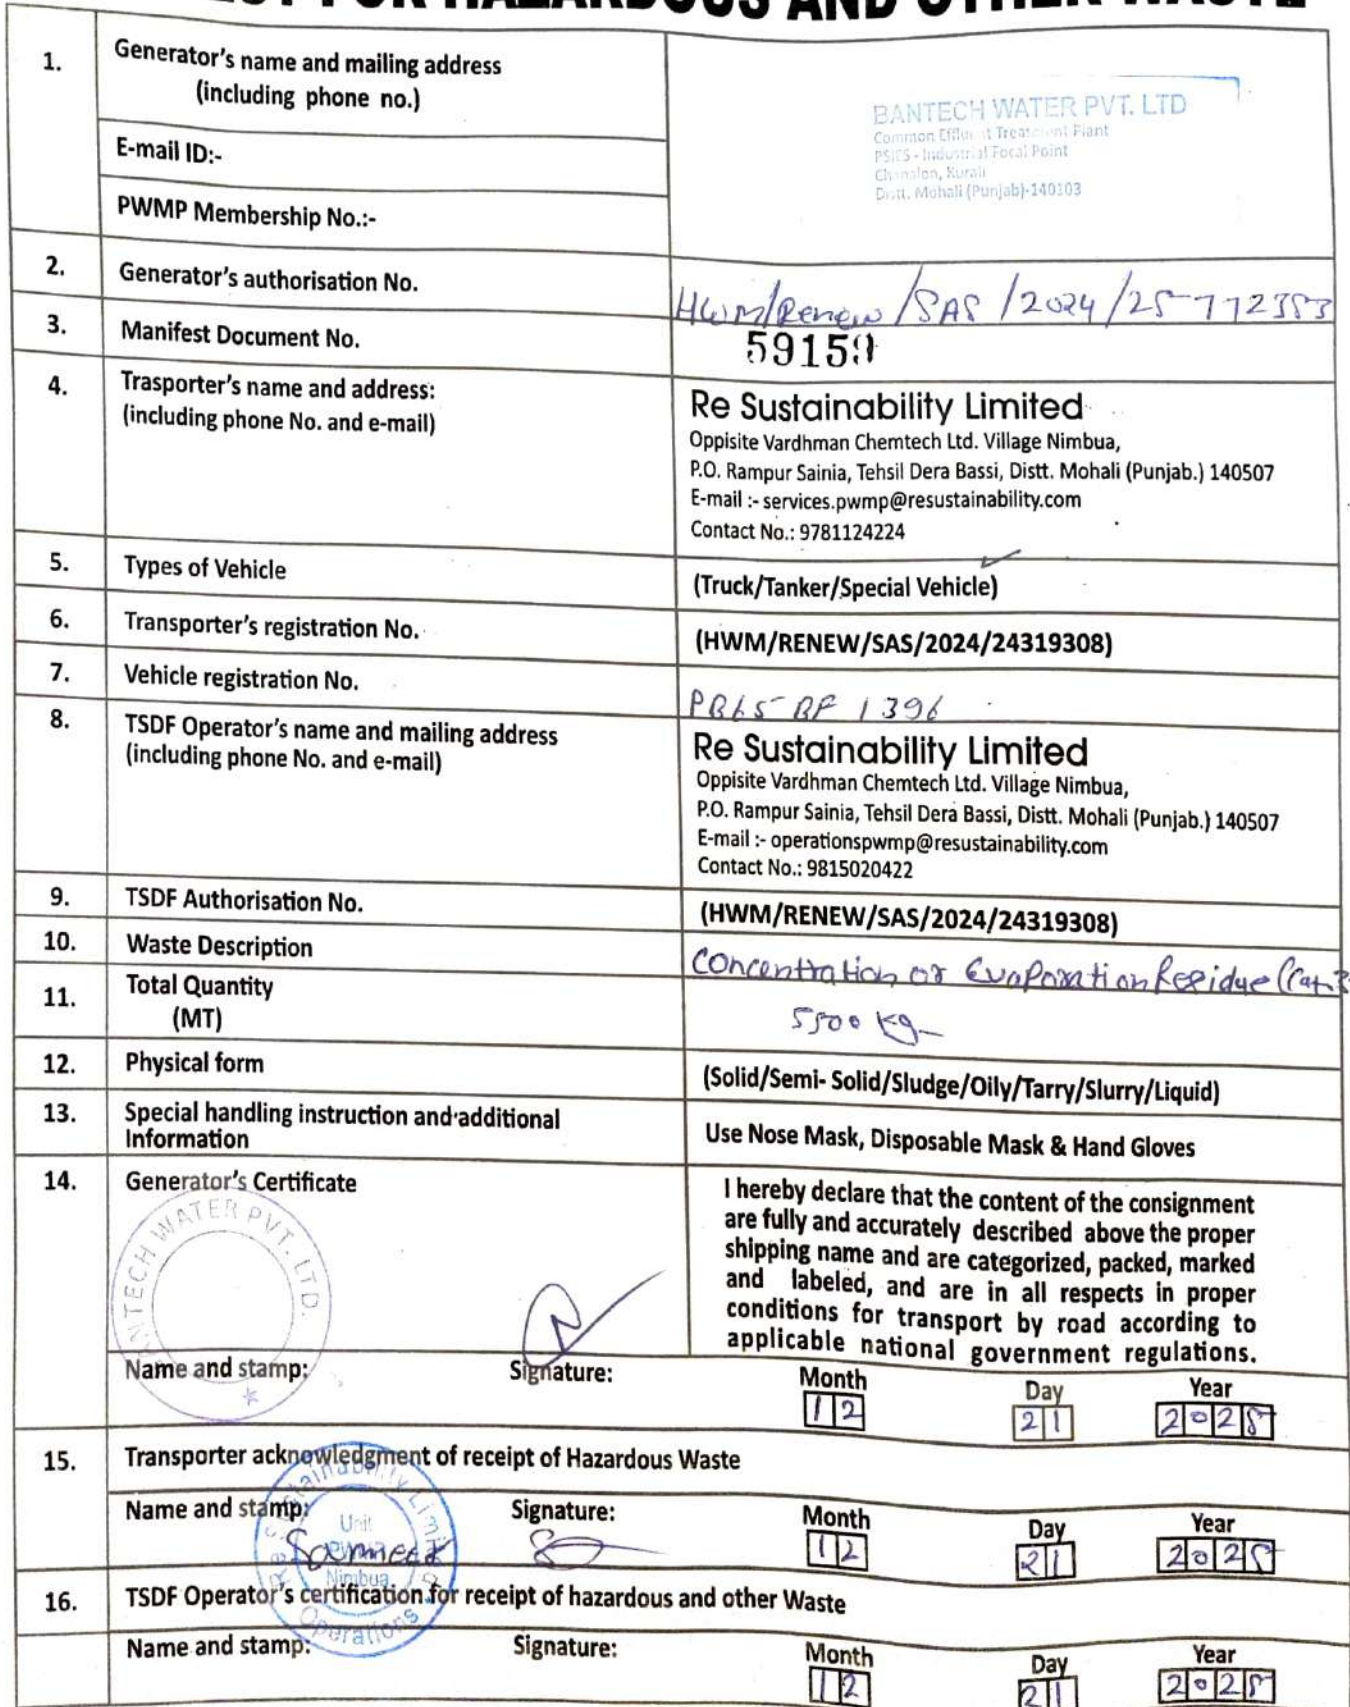 FOR HAZARDOUS AND OTHER WASTE
1. Generator's name and mailing address
(including phone no.)
BANTECH WATER PVT. LTD
Common Effluent Treatment Plant
PSIES - Industrial Focal Point
Chanalon, Kurali
Distt. Mohali (Punjab)-140103
E-mail ID:-
PWMP Membership No.:-
2. Generator's authorisation No.
HWM/Renew/SAS/2024/25772353
3. Manifest Document No.
59159
4. Trasporter's name and address:
(including phone No. and e-mail)
Re Sustainability Limited
Oppisite Vardhman Chemtech Ltd. Village Nimbua,
P.O. Rampur Sainia, Tehsil Dera Bassi, Distt. Mohali (Punjab.) 140507
E-mail :- services.pwmp@resustainability.com
Contact No.: 9781124224
5. Types of Vehicle
(Truck/Tanker/Special Vehicle)
6. Transporter's registration No.
(HWM/RENEW/SAS/2024/24319308)
7. Vehicle registration No.
PB65 BF 1396
8. TSDF Operator's name and mailing address
(including phone No. and e-mail)
Re Sustainability Limited
Oppisite Vardhman Chemtech Ltd. Village Nimbua,
P.O. Rampur Sainia, Tehsil Dera Bassi, Distt. Mohali (Punjab.) 140507
E-mail :- operationspwmp@resustainability.com
Contact No.: 9815020422
9. TSDF Authorisation No.
(HWM/RENEW/SAS/2024/24319308)
10. Waste Description
Concentration or Evaporation Residue
11. Total Quantity
(MT)
5500 kg
12. Physical form
(Solid/Semi- Solid/Sludge/Oily/Tarry/Slurry/Liquid)
13. Special handling instruction and additional
Information
Use Nose Mask, Disposable Mask & Hand Gloves
14. Generator's Certificate
WATER PVT. LTD.
I hereby declare that the content of the consignment
are fully and accurately described above the proper
shipping name and are categorized, packed, marked
and labeled, and are in all respects in proper
conditions for transport by road according to
applicable national government regulations.
Name and stamp: Signature: Month Day Year
12 21 2025
15. Transporter acknowledgment of receipt of Hazardous Waste
Name and stamp: Signature: Month Day Year
12 21 2025
Unit
Nimbua
Operations
16. TSDF Operator's certification for receipt of hazardous and other Waste
Name and stamp: Signature: Month Day Year
12 21 2025